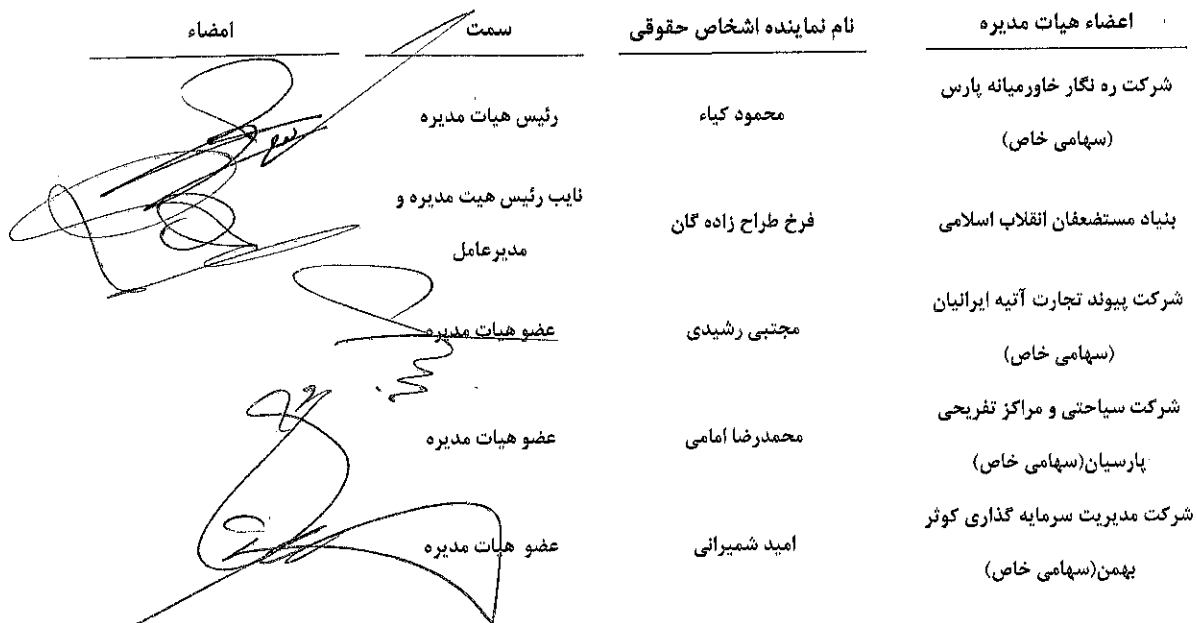 اعضاء هیات مدیره نام نماینده اشخاص حقوقی سمت امضاء
شرکت ره نگار خاورمیانه پارس
(سهامی خاص) محمود کیاء رئیس هیات مدیره
بنیاد مستضعفان انقلاب اسلامی فرخ طراح زاده گان نایب رئیس هیت مدیره و
مدیرعامل
شرکت پیوند تجارت آتیه ایرانیان
(سهامی خاص) مجتبی رشیدی عضو هیات مدیره
شرکت سیاحتی و مراکز تفریحی
پارسیان(سهامی خاص) محمدرضا امامی عضو هیات مدیره
شرکت مدیریت سرمایه گذاری کوثر
بهمن(سهامی خاص) امید شمیرانی عضو هیات مدیره